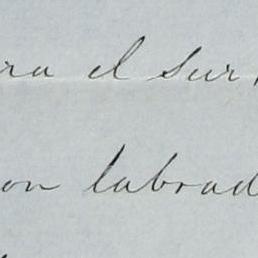 ra el sur,
on labrad